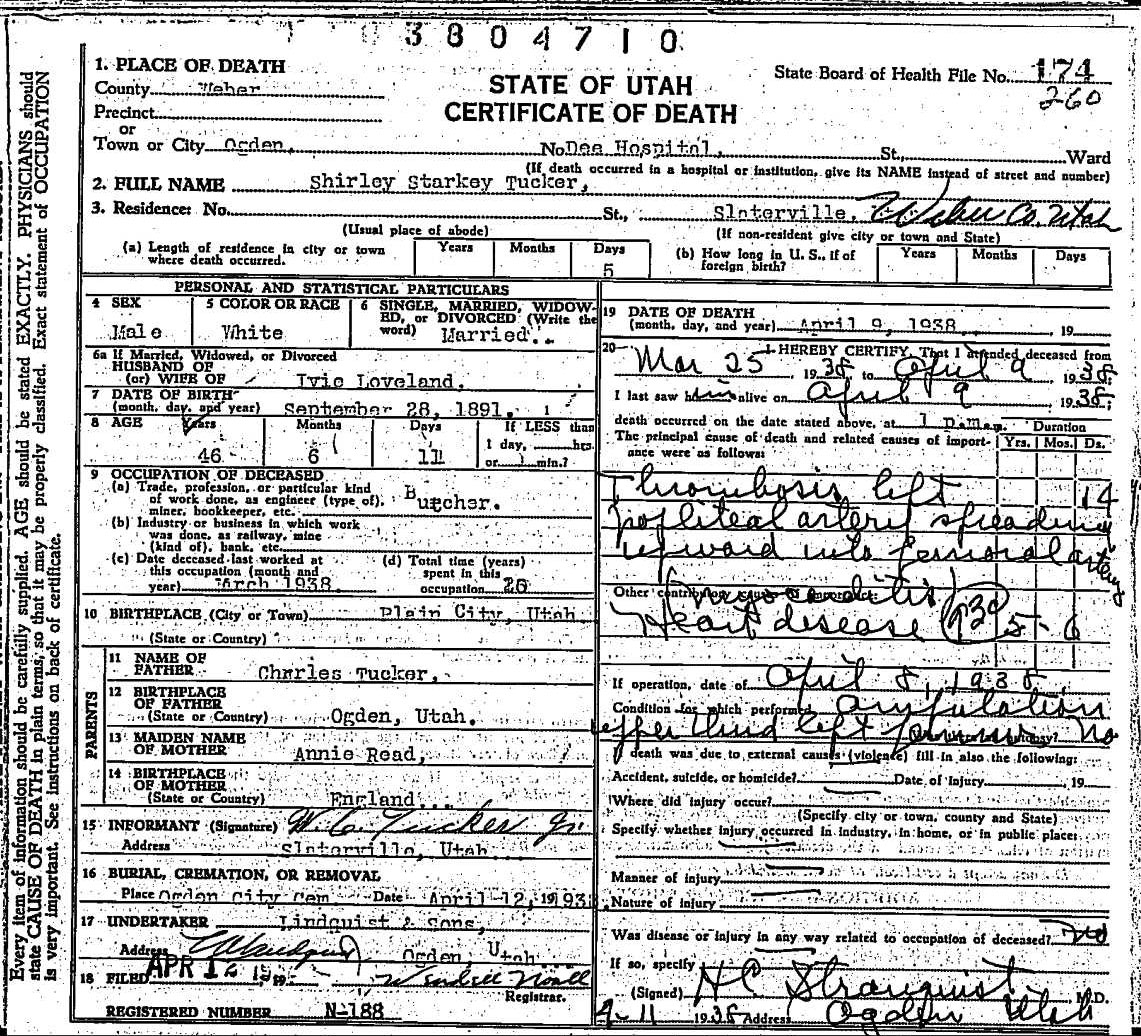 3804710
1. PLACE OF DEATH
STATE OF UTAH
CERTIFICATE OF DEATH
State Board of Health File No. 174
260
County Weber
Precinct
or
Town or City Ogden, No. Dee Hospital, St., Ward
(If death occurred in a hospital or institution, give its NAME instead of street and number)
2. FULL NAME Shirley Starkey Tucker,
3. Residence: No. St., Slaterville, Weber Co. Utah
(Usual place of abode) (If non-resident give city or town and State)
(a) Length of residence in city or town where death occurred. Years Months Days 5
(b) How long in U. S., if of foreign birth? Years Months Days
PERSONAL AND STATISTICAL PARTICULARS
4 SEX Male
5 COLOR OR RACE White
6 SINGLE, MARRIED, WIDOWED, or DIVORCED (Write the word) Married.
6a If Married, Widowed, or Divorced
HUSBAND OF
(or) WIFE OF Ivie Loveland.
7 DATE OF BIRTH
(month, day, and year) September 28, 1891.
8 AGE Years 46 Months 6 Days 11 If LESS than 1 day, hrs. or min.?
9 OCCUPATION OF DECEASED
(a) Trade, profession, or particular kind of work done, as engineer (type of), miner, bookkeeper, etc. Butcher.
(b) Industry or business in which work was done, as railway, mine (kind of), bank, etc.
(c) Date deceased last worked at this occupation (month and year) March 1938
(d) Total time (years) spent in this occupation 26
10 BIRTHPLACE (City or Town) Plain City, Utah
(State or Country)
PARENTS
11 NAME OF FATHER Charles Tucker,
12 BIRTHPLACE OF FATHER
(State or Country) Ogden, Utah.
13 MAIDEN NAME OF MOTHER Annie Read,
14 BIRTHPLACE OF MOTHER
(State or Country) England
15 INFORMANT (Signature) W. C. Tucker Jr.
Address Slaterville, Utah
16 BURIAL, CREMATION, OR REMOVAL
Place Ogden City Cem Date April 12, 193
17 UNDERTAKER Lindquist & Sons,
Address Ogden, Utah
18 FILED APR 12 19
Registrar.
REGISTERED NUMBER N-188
19 DATE OF DEATH
(month, day, and year) April 9, 1938 , 19
20 I HEREBY CERTIFY, That I attended deceased from
Mar 25, 1938 to April 9, 1938:
I last saw him alive on April 9 1938;
death occurred on the date stated above, at 1 m. Duration
The principal cause of death and related causes of importance were as follows: Yrs. Mos. Ds.
Thrombosis left 14
popliteal artery spreading
upward into femoral artery
Other contributory causes of importance:
Myocarditis
Heart disease 5-6
If operation, date of April 8, 1938.
Condition for which performed Amputation
upper third left femur No
If death was due to external causes (violence) fill in also the following:
Accident, suicide, or homicide? Date of Injury 19
Where did injury occur?
(Specify city or town, county and State)
Specify whether injury occurred in industry, in home, or in public place:
Manner of injury
Nature of injury
Was disease or injury in any way related to occupation of deceased? No
If so, specify
(Signed) H C Stranquist M.D.
4-11 1938 Address Ogden Utah
Every item of information should be carefully supplied. AGE should be stated EXACTLY. PHYSICIANS should
state CAUSE OF DEATH in plain terms, so that it may be properly classified. Exact statement of OCCUPATION
is very important. See instructions on back of certificate.